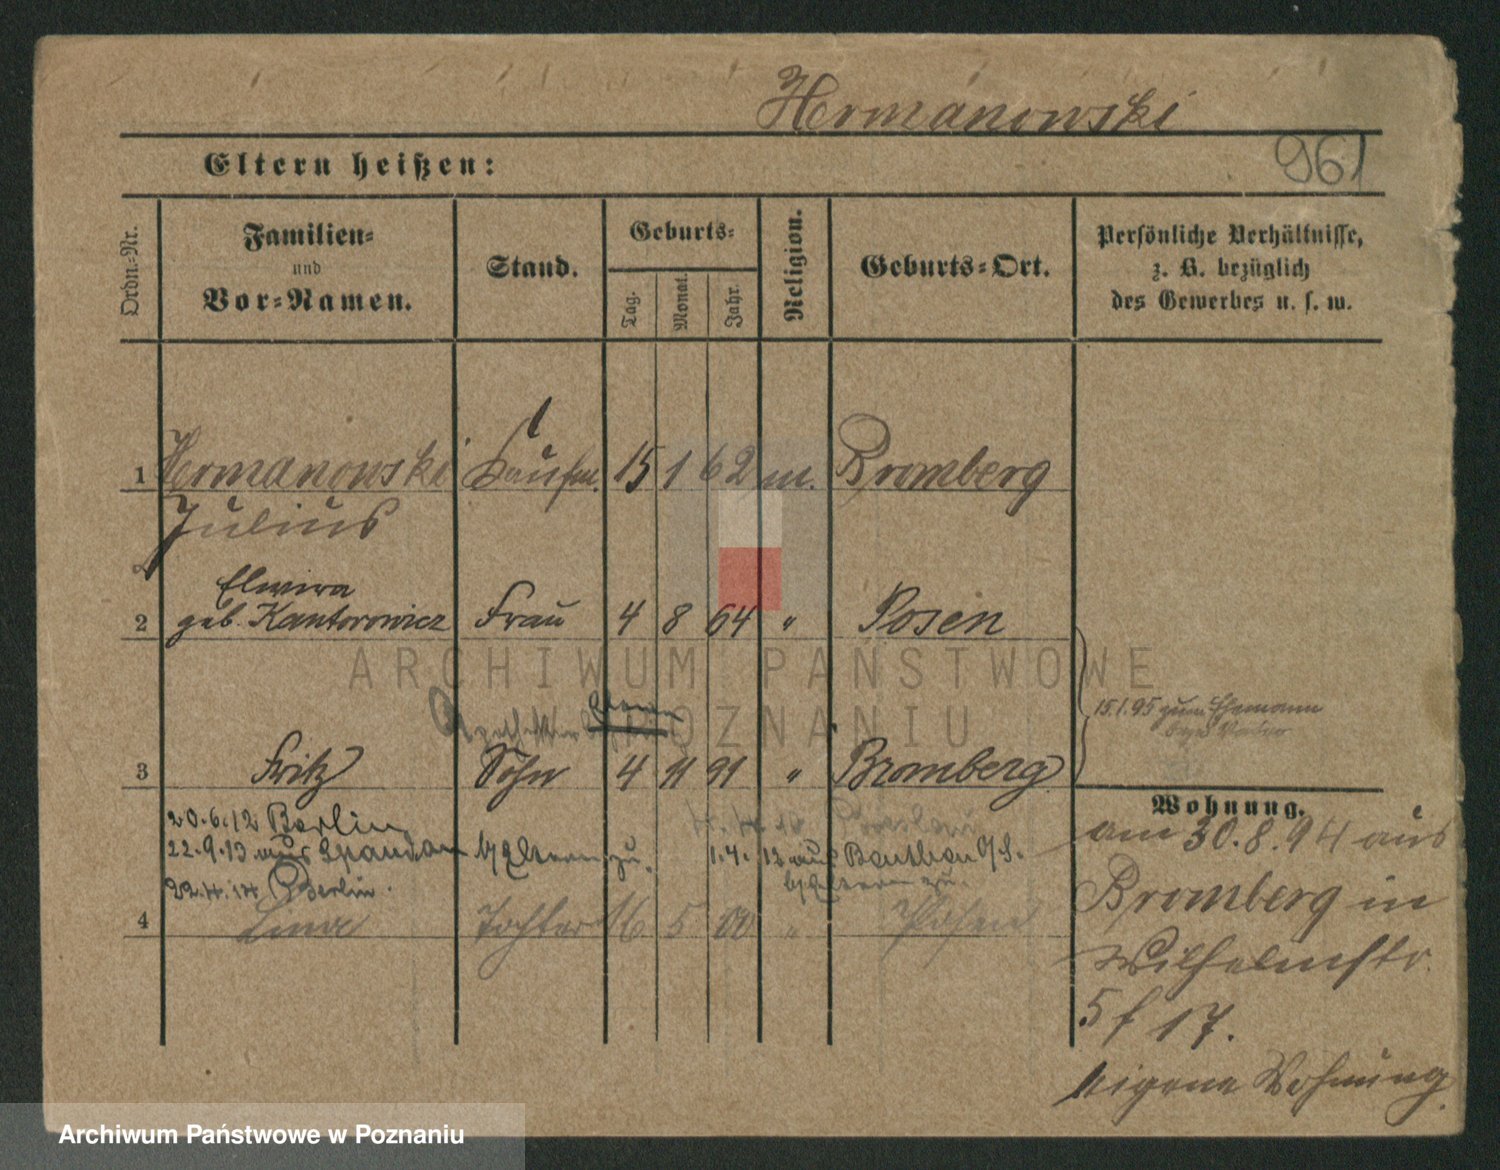 Hermanowski
961
Eltern heißen:
Ordn.-Nr.
Familien-
und
Vor-Namen.
Stand.
Geburts-
Tag.
Monat.
Jahr.
Religion.
Geburts-Ort.
Persönliche Verhältnisse,
z. B. bezüglich
des Gewerbes u. s. w.
1 Hermanowski Kaufm. 15 1 62 m. Bromberg
Julius
Elwira
2 geb. Kantorowicz Frau 4 8 64 " Posen
ARCHIWUM PAŃSTWOWE
W POZNANIU
15.1.95 zum Ehemann
bezw. Vater
3 Fritz Sohn 4 11 91 " Bromberg
20.6.12 Berlin
22.9.13 aus Spandau b/Eltern zu.
1.4.13 aus Beuthen O/S.
b/Eltern zu.
22.4.14 Berlin.
4 Tochter 16 5 00 " Posen
Wohnung.
am 30.8.94 aus
Bromberg in
Wilhelmstr.
5 f 17.
eigene Wohnung.
Archiwum Państwowe w Poznaniu